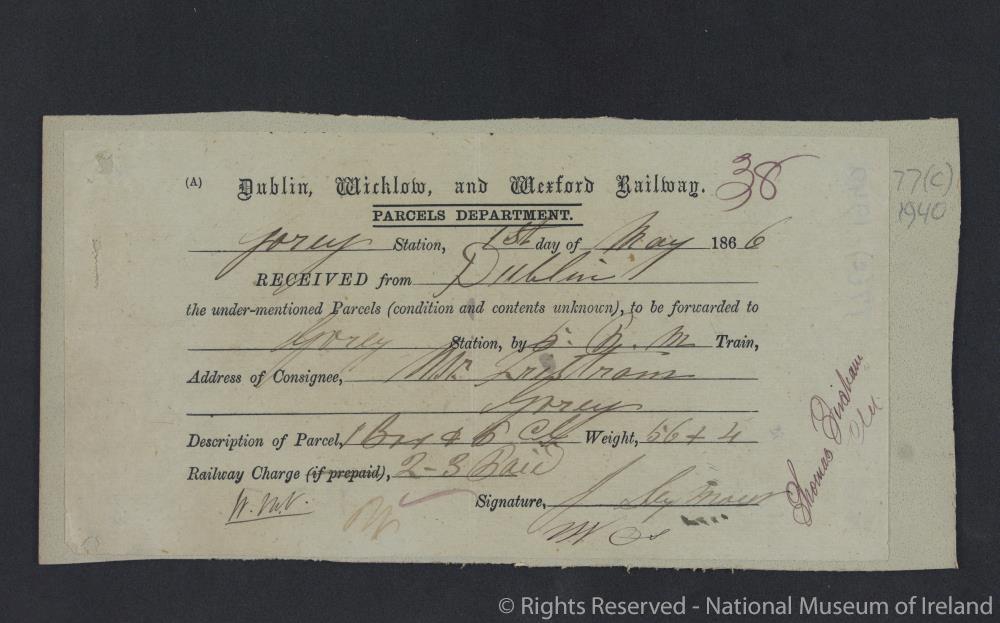 (A) Dublin, Wicklow, and Wexford Railway. 38
77(C)
1940
PARCELS DEPARTMENT.
Gorey Station, 1st day of May 1866
RECEIVED from Dublin
the under-mentioned Parcels (condition and contents unknown), to be forwarded to
Gorey Station, by 5. P. M Train,
Address of Consignee, Mr.
Gorey
Description of Parcel, 1 Box & Weight, 56 + 4
Railway Charge (if prepaid), 2-3 Paid
Signature,
Thomas
© Rights Reserved - National Museum of Ireland